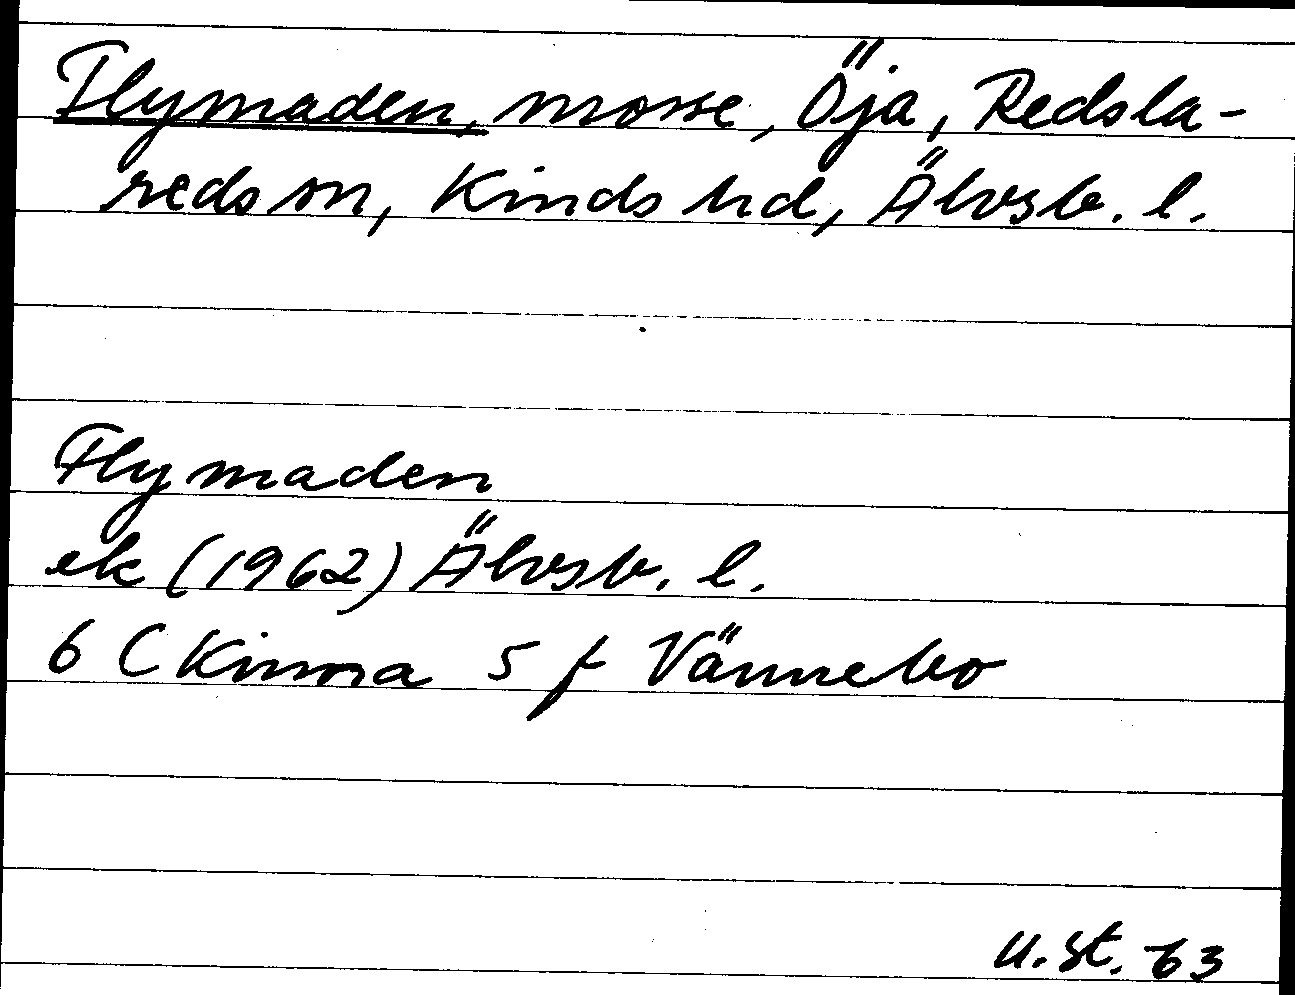 Flymaden, mosse, Öja, Redsla-
reds sn, Kinds hd, Älvsb. l.
Flymaden
ek (1962) Älvsb. l.
6 C Kinna 5 f Vännebo
U.St. 63